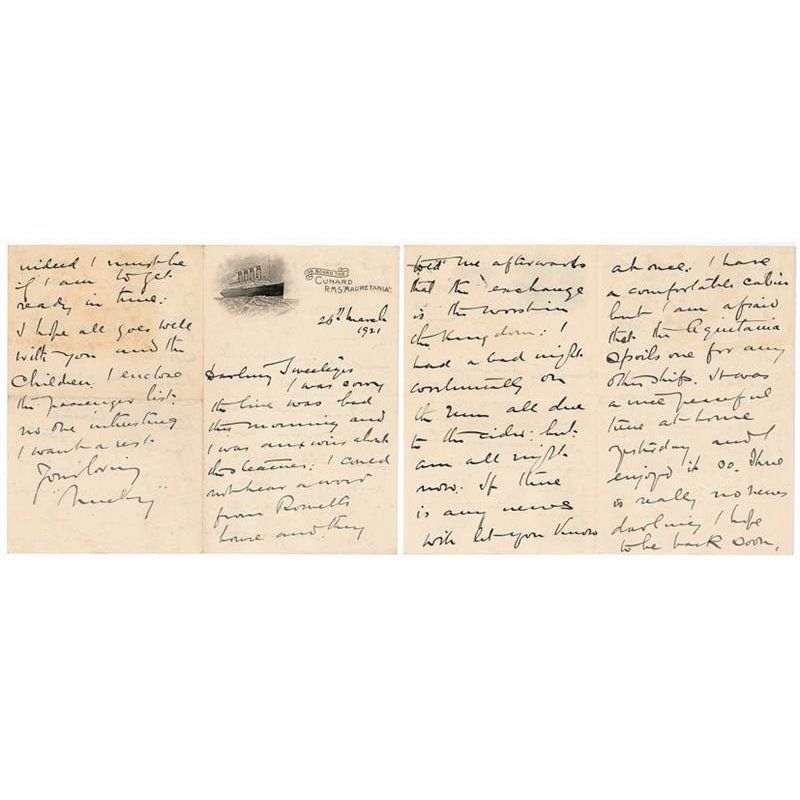 ON BOARD THE
CUNARD
R.M.S. "MAURETANIA"
26th March
1921
Darling Sweeteyes
I was sorry
the line was bad
this morning and
I was anxious about
this
I could
not hear a word
from Rowetts
house and they
told me afterwards
that the exchange
is the worst in
the Kingdom: I
had a bad night
continually on
the run all due
to the cider: but
am all right
now. If there
is any news
will let you know
at once: I have
a comfortable cabin
but I am afraid
that the Aquitania
spoils one for any
other ship. It was
a nice peaceful
time at home
yesterday and I
enjoyed it so. There
is really no news
darling I hope
to be back soon,
indeed I must be
if I am to get
ready in time:
I hope all goes well
with you and the
Children. I enclose
the passenger list.
no one interesting
I want a rest.
Your loving
"Micky"